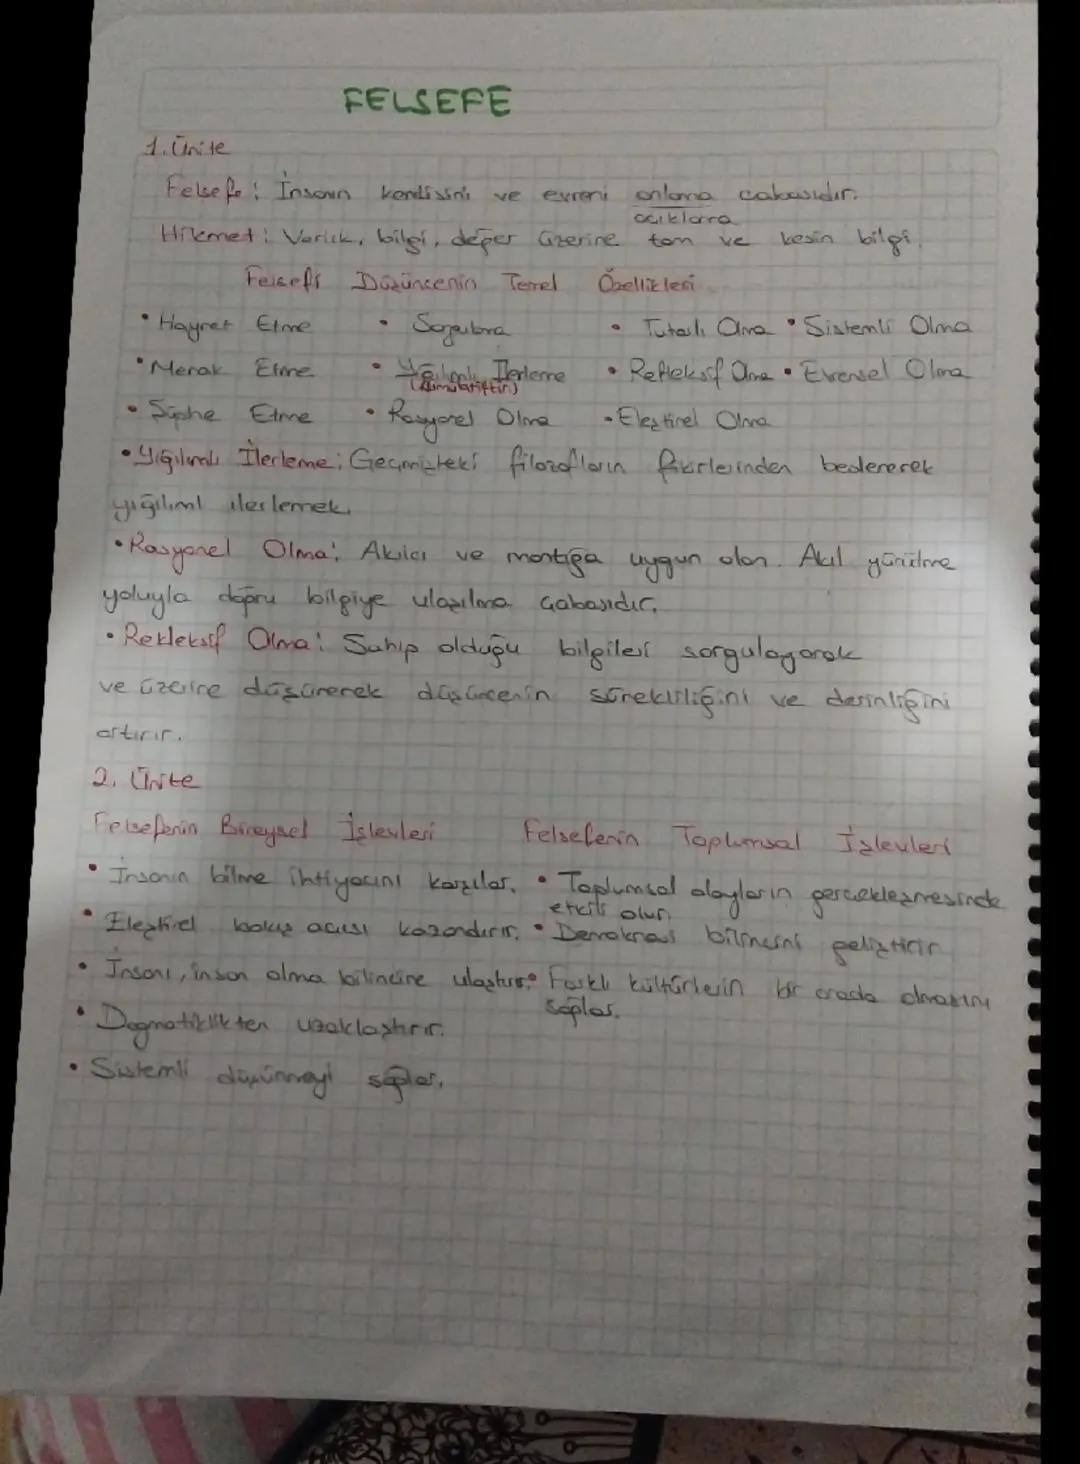 FELSEFE
1. Ünite
Felsefe: İnsanın kendisini ve evreni anlama çabasıdır.
açıklama
Hikmet: Varlık, bilgi, değer üzerine tam ve kesin bilgi.
Felsefi Düşüncenin Temel Özellikleri
• Hayret Etme • Sorgulama • Tutarlı Olma • Sistemli Olma
• Merak Etme • Yığılımlı İlerleme • Refleksif Olma • Evrensel Olma
(Kümülatiftir)
• Şüphe Etme • Rasyonel Olma • Eleştirel Olma
• Yığılımlı İlerleme: Geçmişteki filozofların fikirlerinden beslenerek
yığılıml ilerlemek.
• Rasyonel Olma: Akılcı ve mantığa uygun olan. Akıl yürütme
yoluyla doğru bilgiye ulaşılma çabasıdır.
• Rekleksif Olma: Sahip olduğu bilgileri sorgulayarak
ve üzerine düşünerek düşüncenin sürekliliğini ve derinliğini
artırır.
2. Ünite
Felsefenin Bireysel İşlevleri Felsefenin Toplumsal İşlevleri
• İnsanın bilme ihtiyacını karşılar. • Toplumsal olayların gerçekleşmesinde
etkili olur.
• Eleştirel bakış açısı kazandırır. • Demokrasi bilincini geliştirir.
• İnsanı, insan olma bilincine ulaştırır. • Farklı kültürlerin bir arada olmasını
sağlar.
• Dogmatiklikten uzaklaştırır.
• Sistemli düşünmeyi sağlar.